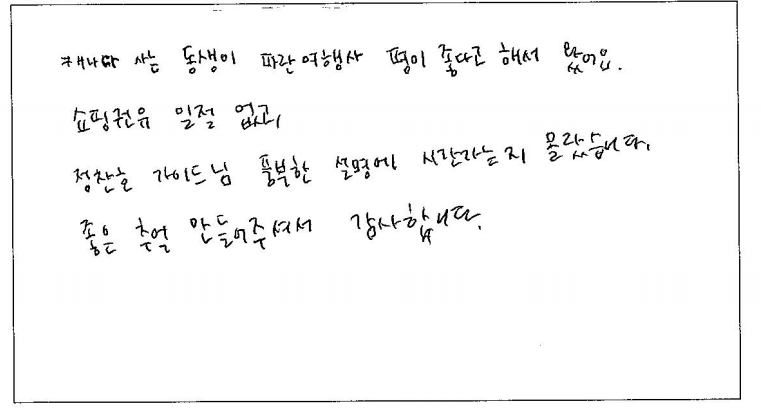 캐나다 사는 동생이 파란여행사 평이 좋다고 해서 왔어요.
쇼핑권유 일절 없고,
정찬호 가이드님 풍부한 설명에 시간가는지 몰랐습니다.
좋은 추억 만들어주셔서 감사합니다.